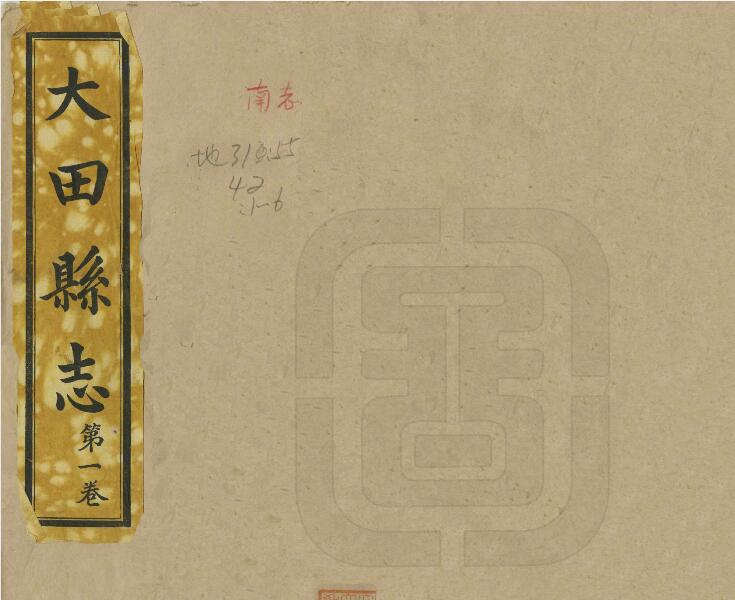 大田縣志
第一卷
南志
地310.55
42
:1-6